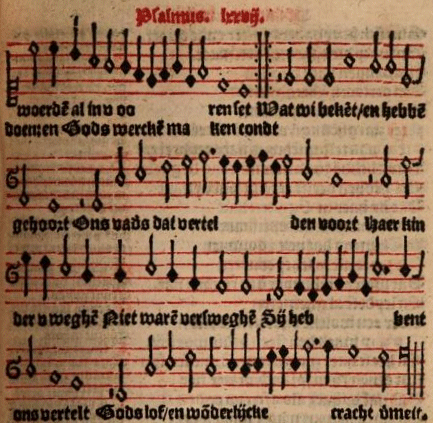 Psalmus. lxxvij.
woordē al in v oo ren set Wat wi bekēt/en hebbē
doen; en Gods werckē ma ken condt
gehoort Ons vads dat vertel den voort Haer kin
der v weghē Niet warē versweghē Sij heb bent
ons vertelt Gods lof/en wōderlijcke cracht v̄melt.